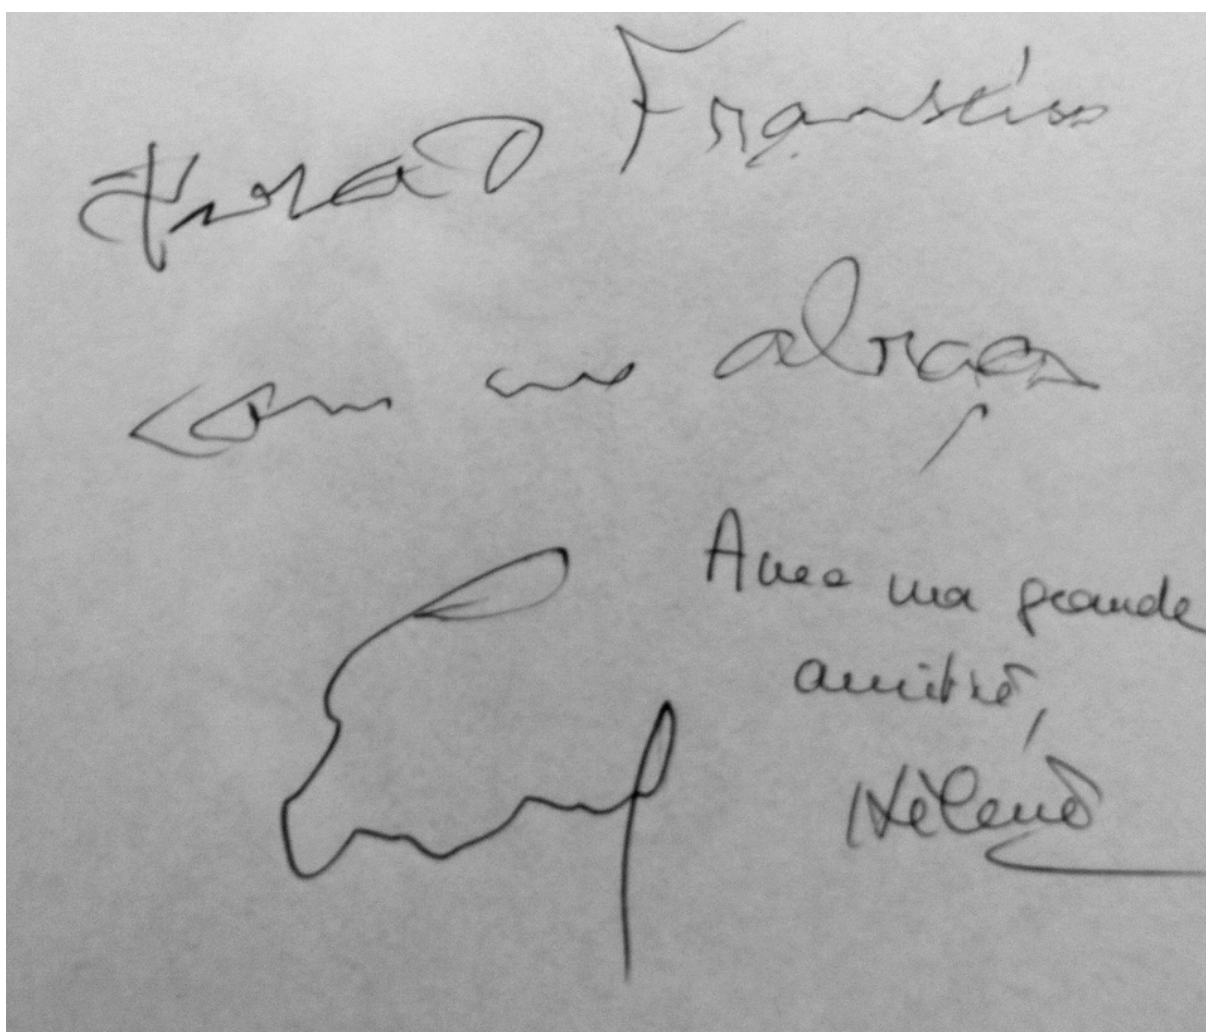 Francisco
com um abraço
Avec ma grande
amitié,
Hélène